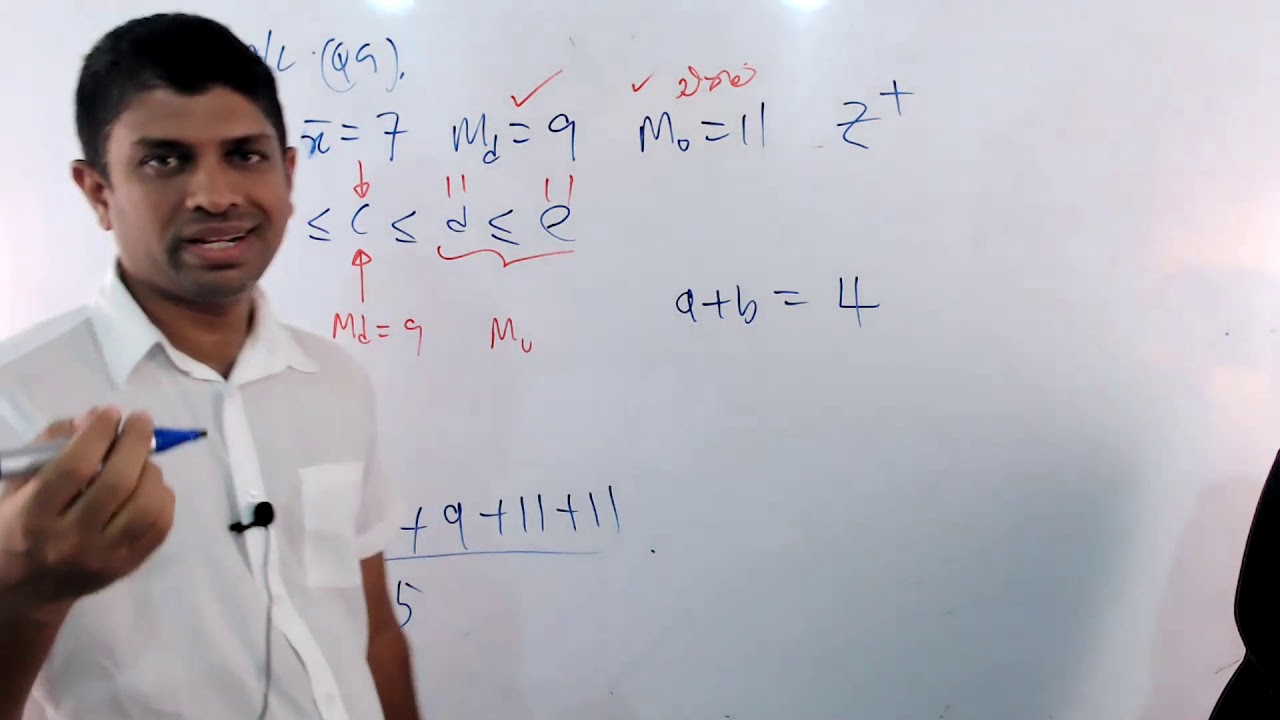 (Q9).
x̄ = 7 Md = 9 ✓ Mo = 11 ✓ z⁺
≤ c ≤ d ≤ e
11 11
Md = 9 Mo
a+b = 4
+ 9 + 11 + 11
5